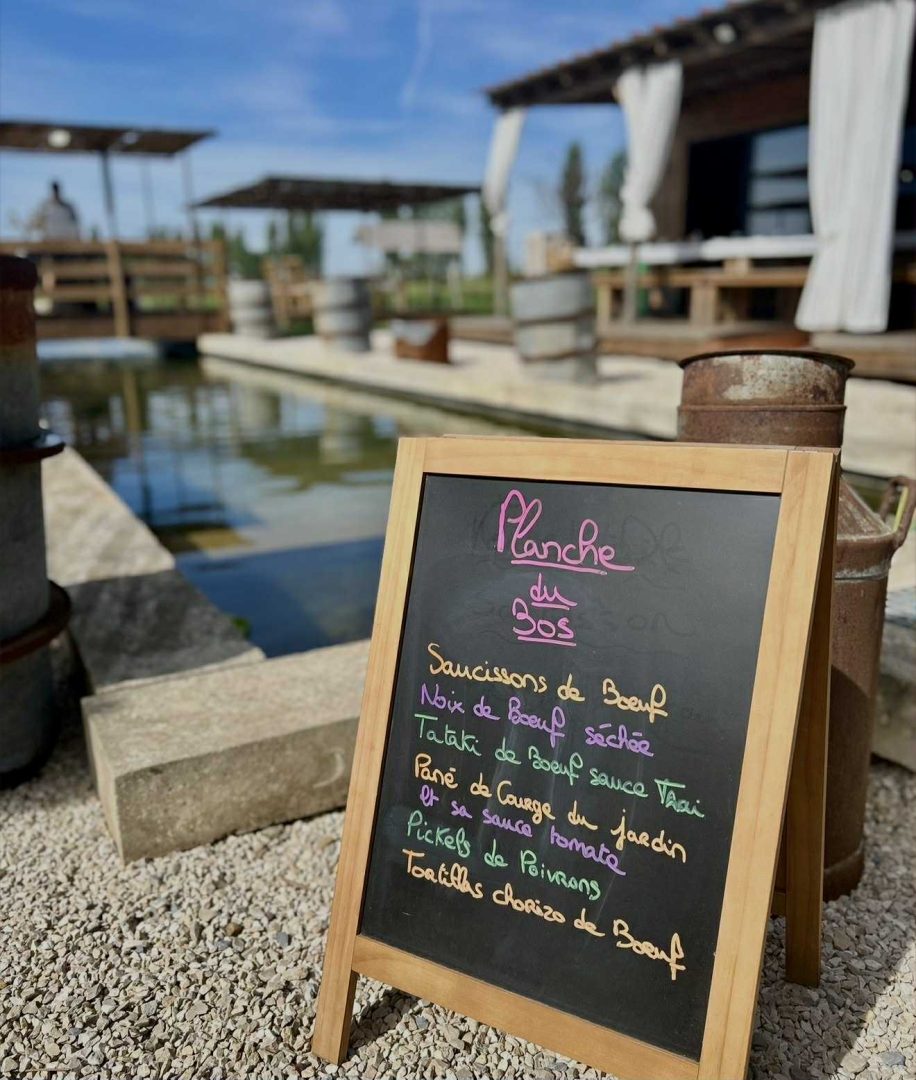 Planche
du
Bos
Saucissons de Boeuf
Noix de Boeuf séchée
Tataki de Boeuf sauce Thai
Pané de Courge du jardin
et sa sauce tomate
Pickels de Poivrons
Tortillas chorizo de Boeuf